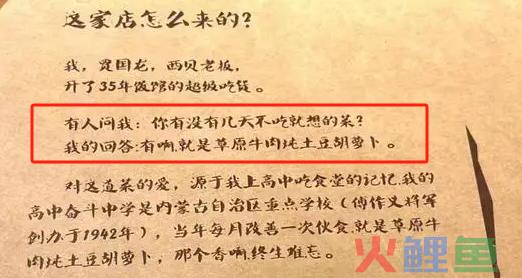 这家店怎么来的?
我,贾国龙,西贝老板,
开了35年饭馆的超级吃货。
有人问我:你有没有几天不吃就想的菜?
我的回答:有啊,就是草原牛肉炖土豆胡萝卜。
对这道菜的爱,源于我上高中吃食堂的记忆.我的
高中奋斗中学是内蒙古自治区重点学校(傅作义将军
创办于1942年),当年每月改善一次伙食.就是草原牛
肉炖土豆胡萝卜,那个香啊,终生难忘。
火鲤鱼